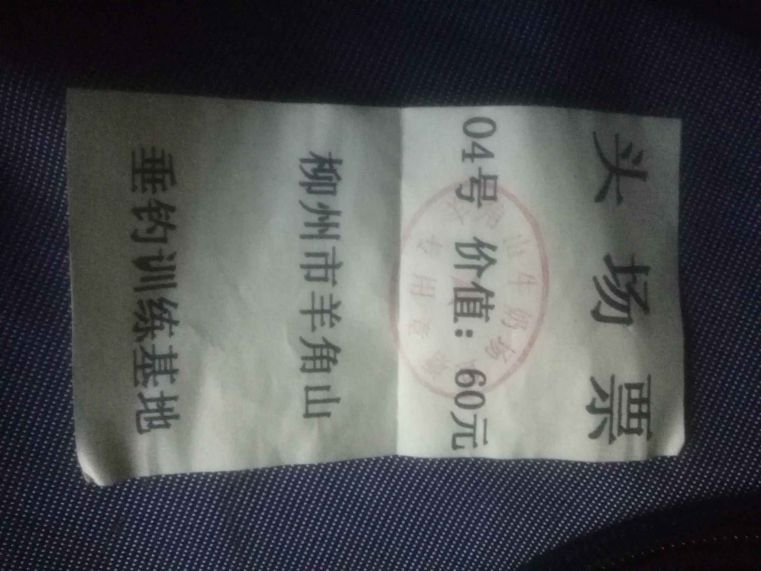 头场票
04号 价值：60元
柳州市羊角山
垂钓训练基地
山牛奶场
专用章